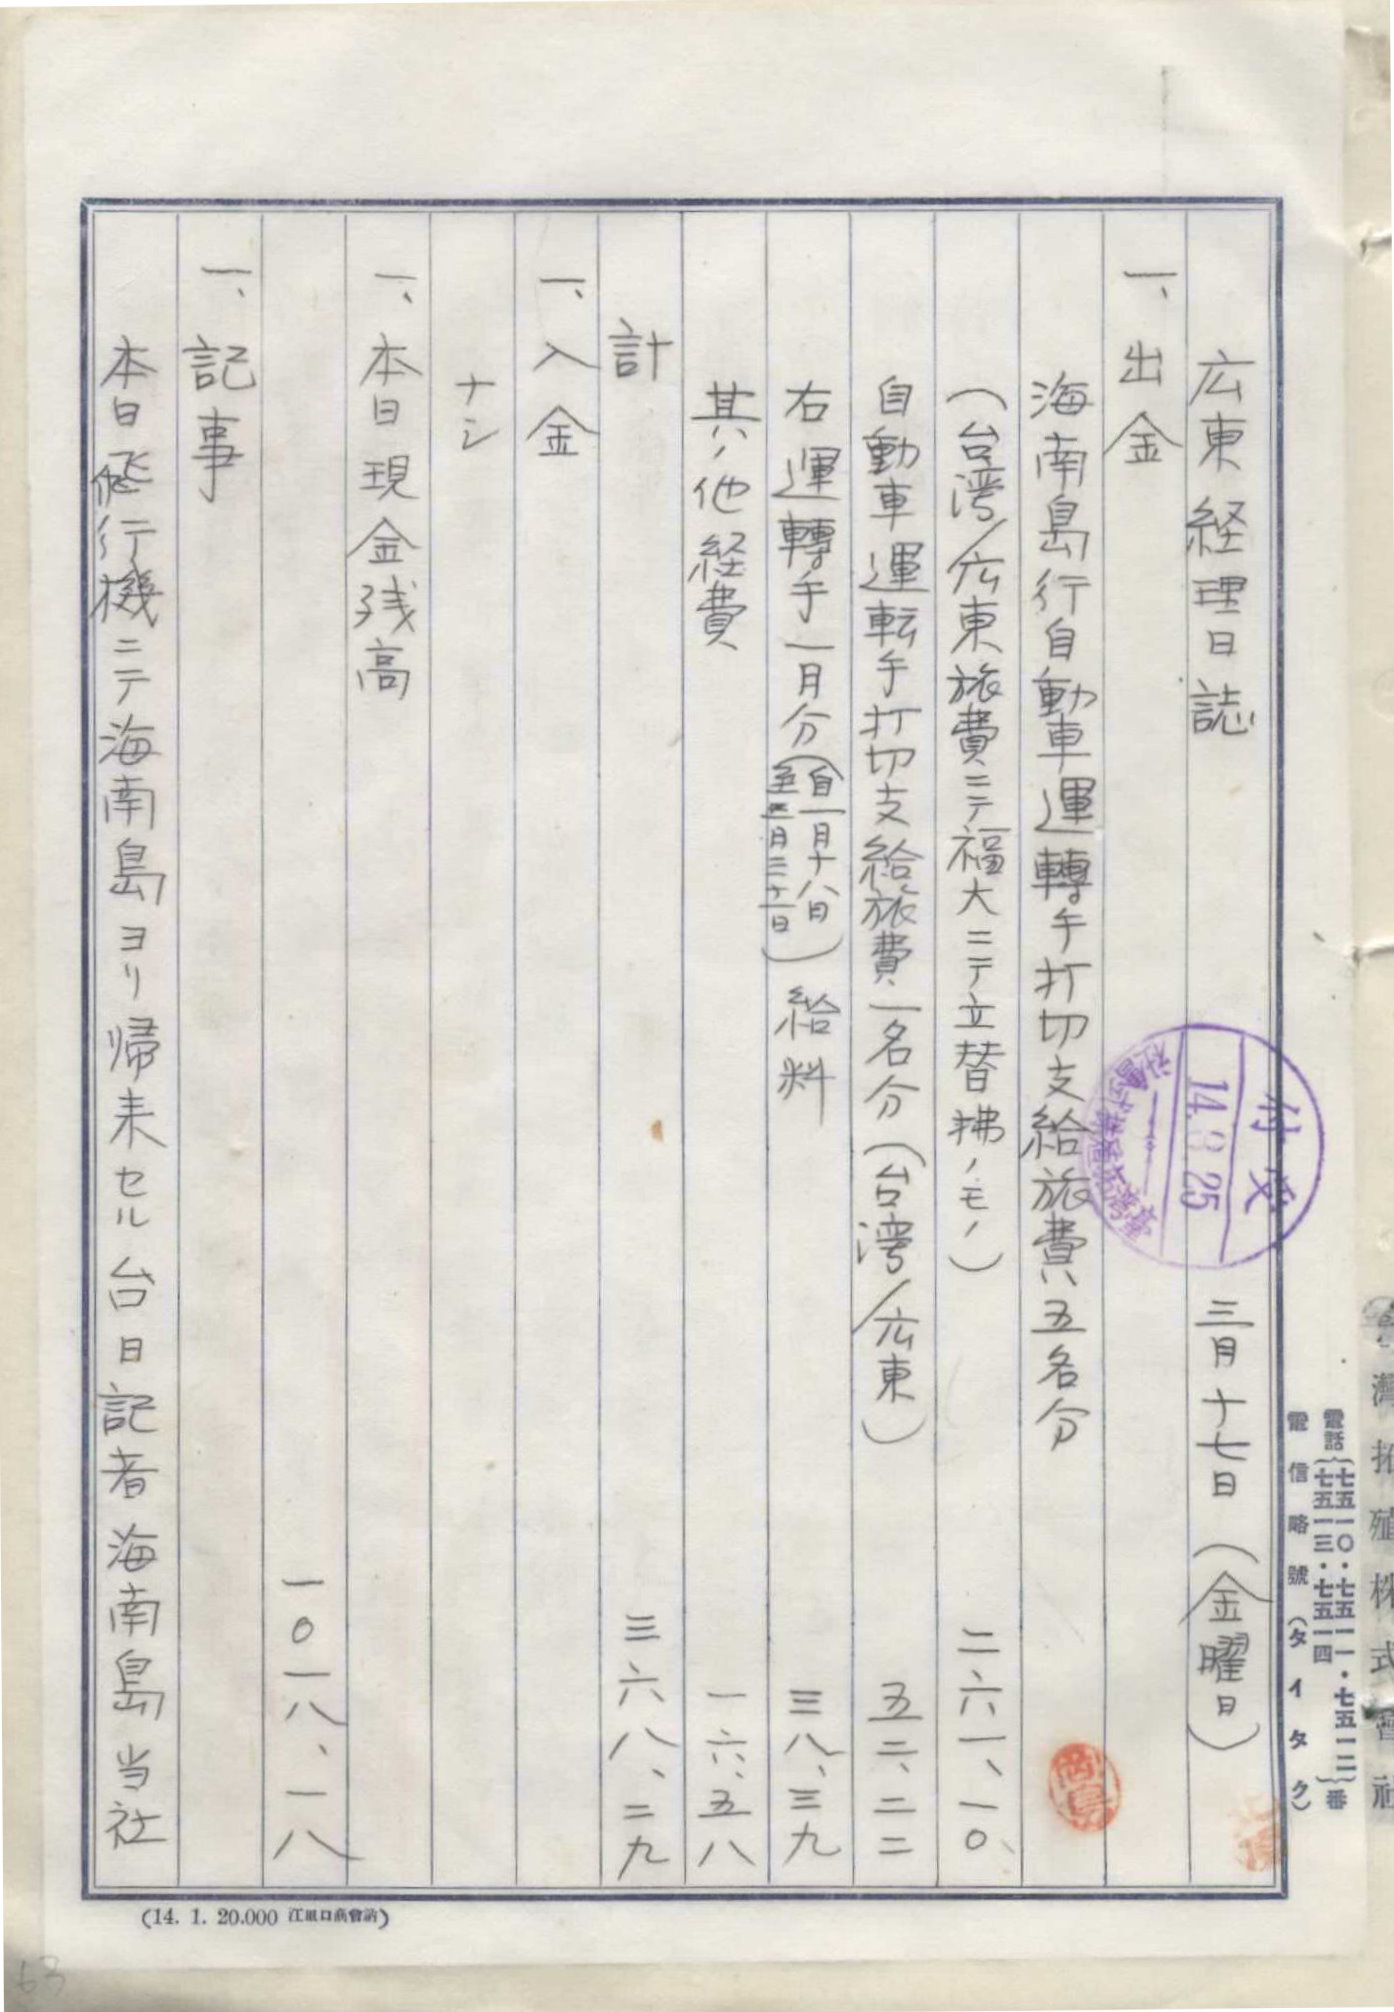 広東経理日誌 三月十七日（金曜日）
一、出金
海南島行自動車運轉手打切支給旅費五名分
（台湾/広東旅費ニテ福大ニテ立替拂ノモノ） 二六一、一〇
自動車運転手打切支給旅費一名分（台湾/広東） 五二、二二
右運轉手一月分（自一月十八日
至三月三十一日）給料 三八、三九
其ノ他経費 一六、五八
計 三六八、二九
一、入金
ナシ
一、本日現金残高
一〇一八、一八
一、記事
本日飛行機ニテ海南島ヨリ帰来セル台日記者海南島当社
付受
14.3.25
臺灣拓殖株式會社
電話（七五一〇・七五一一・七五一二
七五一三・七五一四）番
電信略號（タイタク）
(14. 1. 20.000 江里口商會納)
63